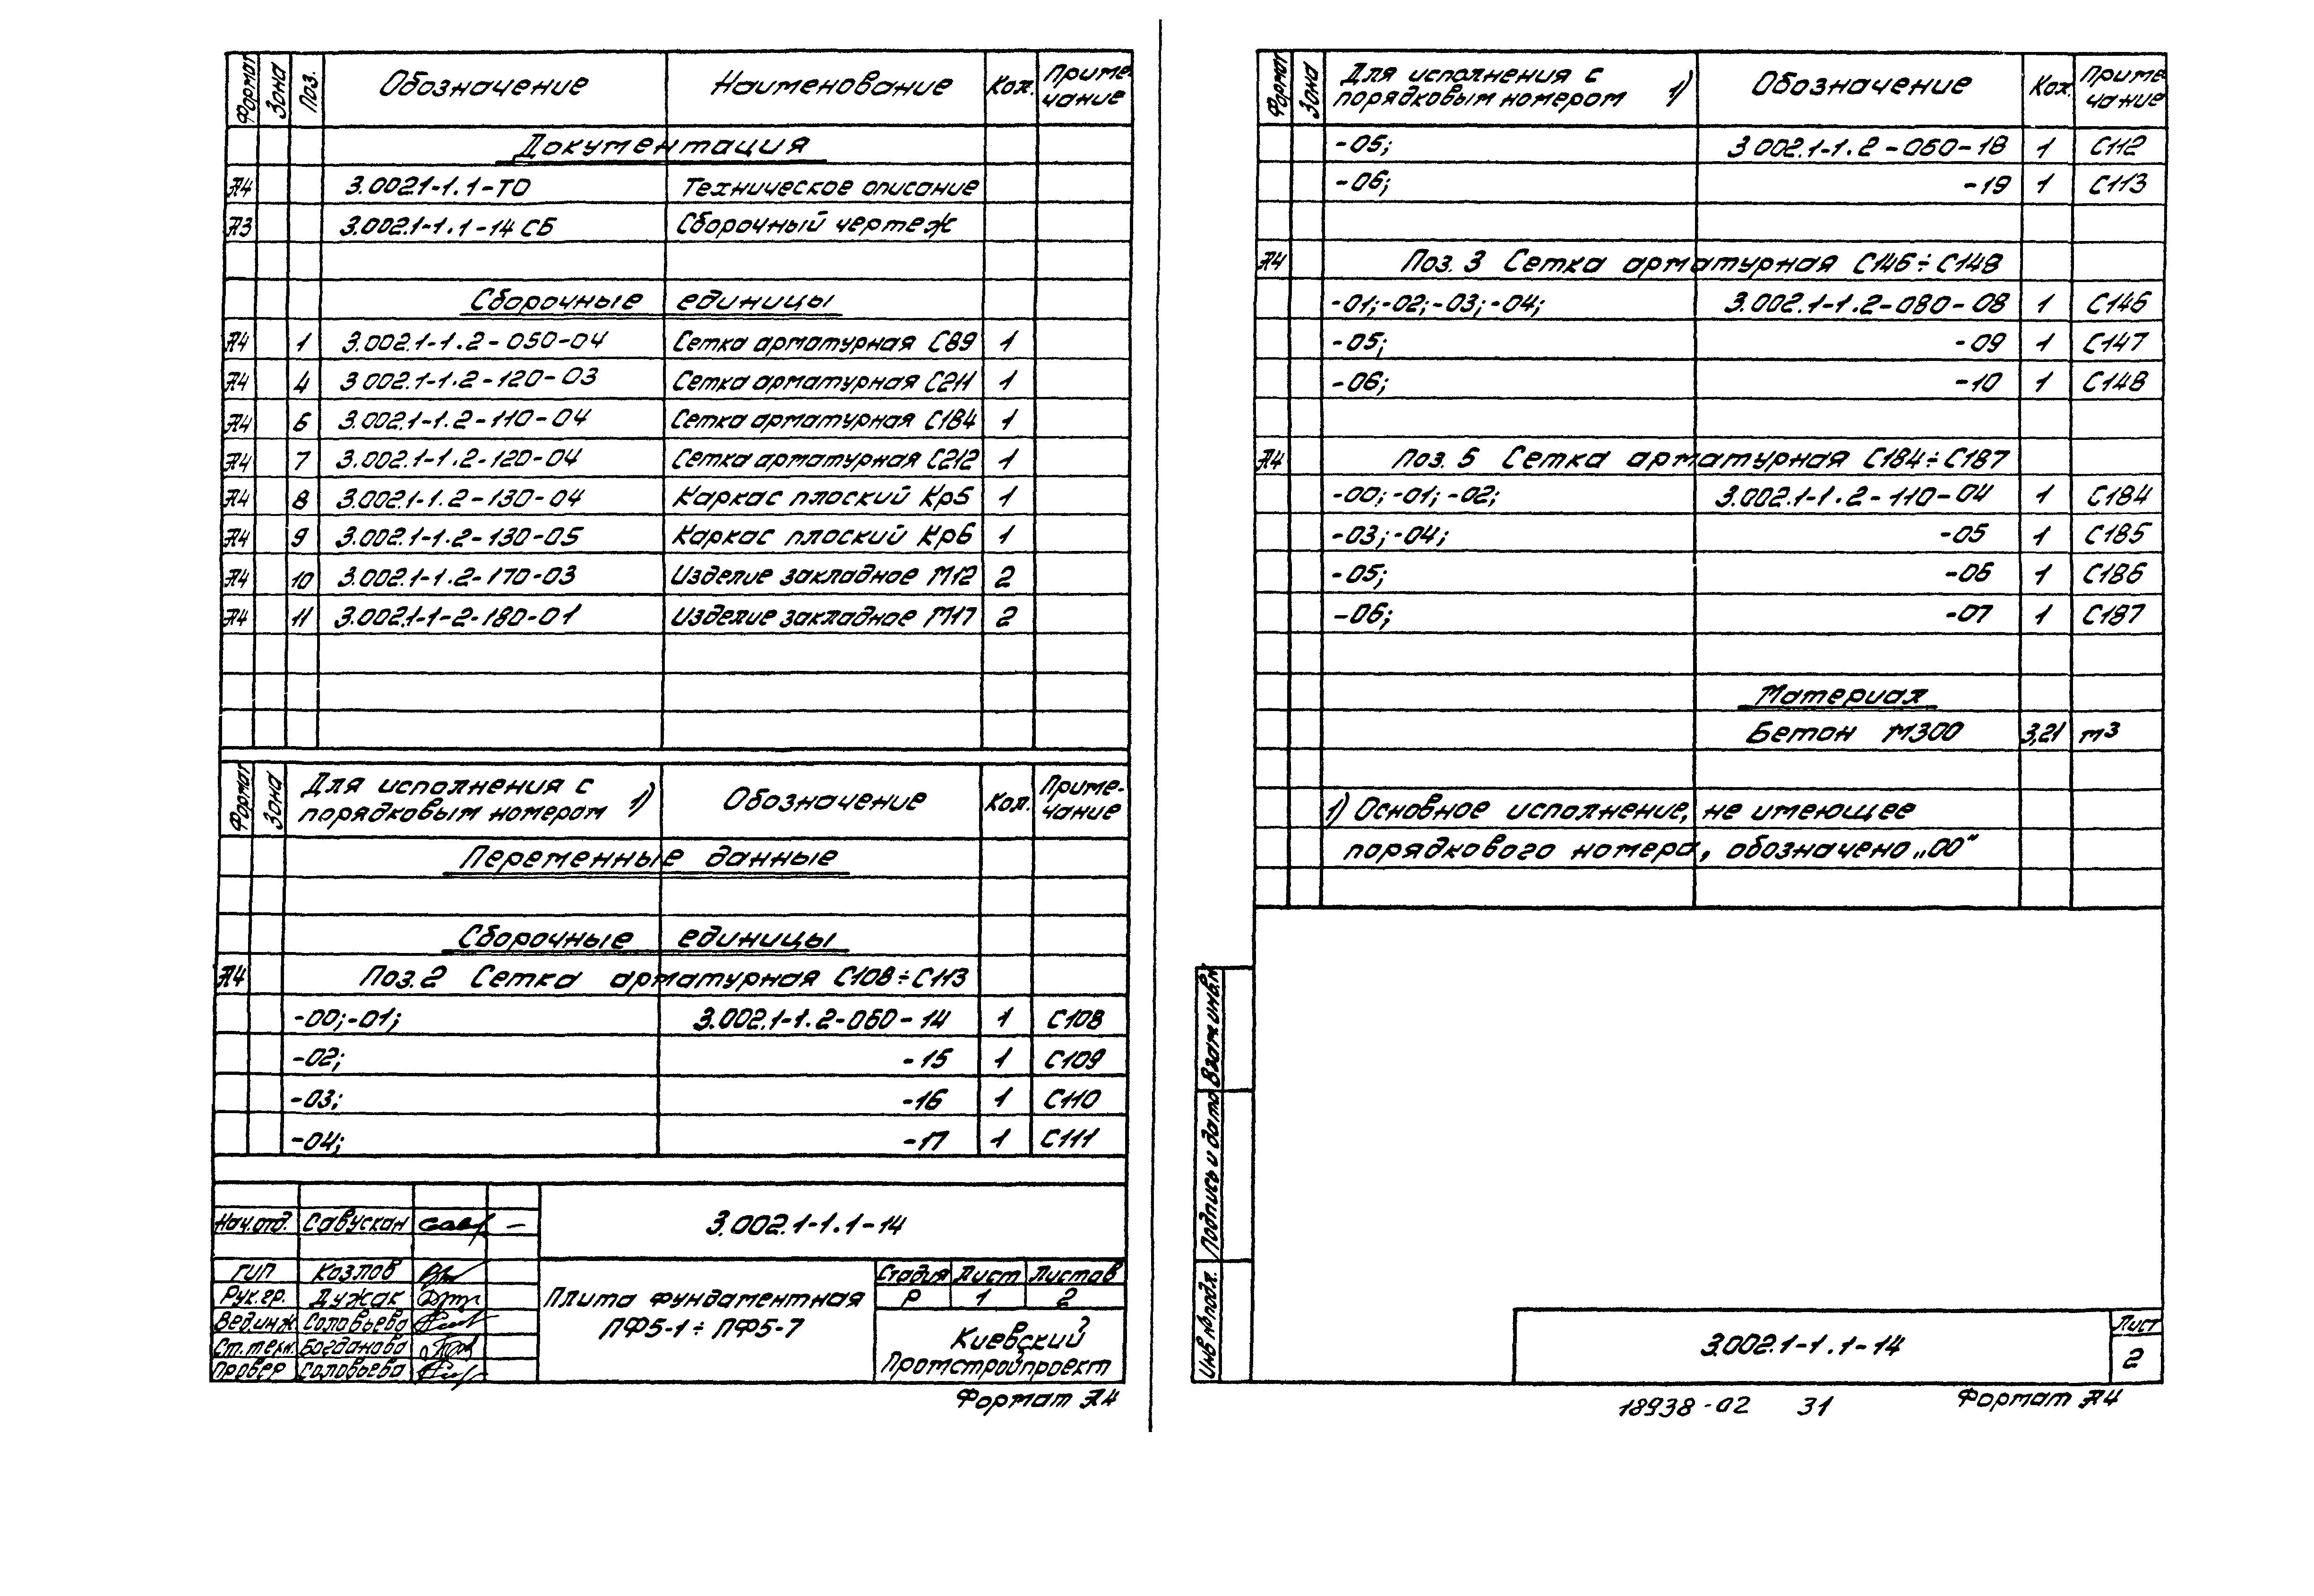 Формат Зона Поз. Обозначение Наименование Кол. Приме-
чание
Документация
А4 3.002.1-1.1-ТО Техническое описание
А3 3.002.1-1.1-14 СБ Сборочный чертеж
Сборочные единицы
А4 1 3.002.1-1.2-050-04 Сетка арматурная С89 1
А4 4 3.002.1-1.2-120-03 Сетка арматурная С211 1
А4 6 3.002.1-1.2-110-04 Сетка арматурная С184 1
А4 7 3.002.1-1.2-120-04 Сетка арматурная С212 1
А4 8 3.002.1-1.2-130-04 Каркас плоский Кр5 1
А4 9 3.002.1-1.2-130-05 Каркас плоский Кр6 1
А4 10 3.002.1-1.2-170-03 Изделие закладное М12 2
А4 11 3.002.1-1-2-180-01 Изделие закладное М17 2
Формат Зона Для исполнения с
порядковым номером 1) Обозначение Кол. Приме-
чание
Переменные данные
Сборочные единицы
А4 Поз. 2 Сетка арматурная С108÷С113
-00;-01; 3.002.1-1.2-060-14 1 С108
-02; -15 1 С109
-03; -16 1 С110
-04; -17 1 С111
Нач.отд. Савускан
3.002.1-1.1-14
ГИП Козлов
Рук.гр. Дужак
Вед.инж. Соловьева
Ст.техн. Богданова
Провер Соловьева
Плита фундаментная
ПФ5-1÷ПФ5-7
Стадия Лист Листов
Р 1 2
Киевский
Промстройпроект
Формат А4
Формат Зона Для исполнения с
порядковым номером 1) Обозначение Кол. Приме-
чание
-05; 3.002.1-1.2-060-18 1 С112
-06; -19 1 С113
А4 Поз. 3 Сетка арматурная С146÷С148
-01;-02;-03;-04; 3.002.1-1.2-080-08 1 С146
-05; -09 1 С147
-06; -10 1 С148
А4 Поз. 5 Сетка арматурная С184÷С187
-00;-01;-02; 3.002.1-1.2-110-04 1 С184
-03;-04; -05 1 С185
-05; -06 1 С186
-06; -07 1 С187
Материал
Бетон М300 3,21 м3
1) Основное исполнение, не имеющее
порядкового номера, обозначено „00“
Взам инв.№
Подпись и дата
Инв №подл.
3.002.1-1.1-14
Лист
2
18938-02 31 Формат А4